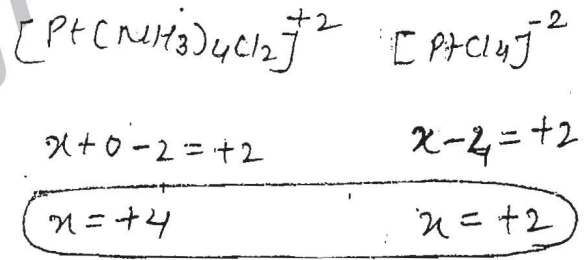 [Pt(NH3)4Cl2]+2 [PtCl4]-2
x+0-2=+2 x-4=+2
x=+4 x=+2